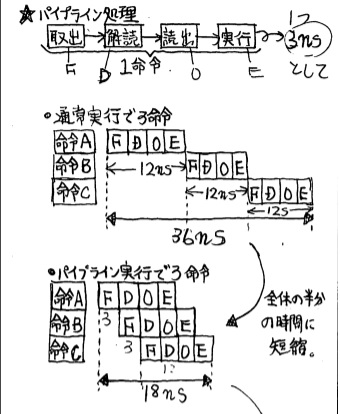 ★パイプライン処理
取出→解読→読出→実行→3ns
1つ
として
F D O E
1命令
・通常実行で3命令
命令A F D O E
命令B F D O E
命令C F D O E
12ns
12ns
12s
36ns
・パイプライン実行で3命令
命令A F D O E
命令B F D O E
命令C F D O E
3
3
18ns
全体の半分
の時間に
短縮。